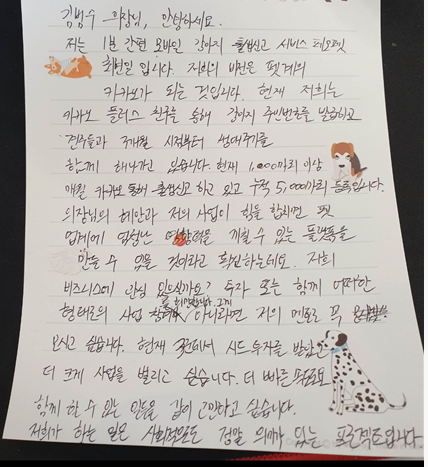 김범수 의장님, 안녕하세요.
저는 1분 간편 모바일 강아지 출생신고 서비스 페오펫
최현일 입니다. 저희의 비전은 펫계의
카카오가 되는 것입니다. 현재 저희는
카카오 플러스 친구를 통해 강아지 주민번호를 발급하고
견주들과 2개월 시점부터 생애주기를
함께 해나가고 있습니다. 현재 1,000마리 이상
매월 카카오 통해 출생신고 하고 있고 누적 5,000마리 등록입니다.
의장님의 혜안과 저의 사업이 힘을 합치면 펫
업계에 엄청난 영향력을 끼칠 수 있는 플랫폼을
만들 수 있을 것이라고 확신하는데요. 저희
비즈니스에 관심 있으신가요? 투자 또는 함께 어떠한
형태로의 사업 희망합니다. 그게 아니라면 저의 멘토로 꼭
모시고 싶습니다. 현재 시드투자를 받았고
더 크게 사업을 벌리고 싶습니다. 더 빠른
함께 할 수 있는 일들을 깊이 고민하고 싶습니다.
저희가 하는 일은 사회적으로도 정말 의미가 있는 프로젝트입니다